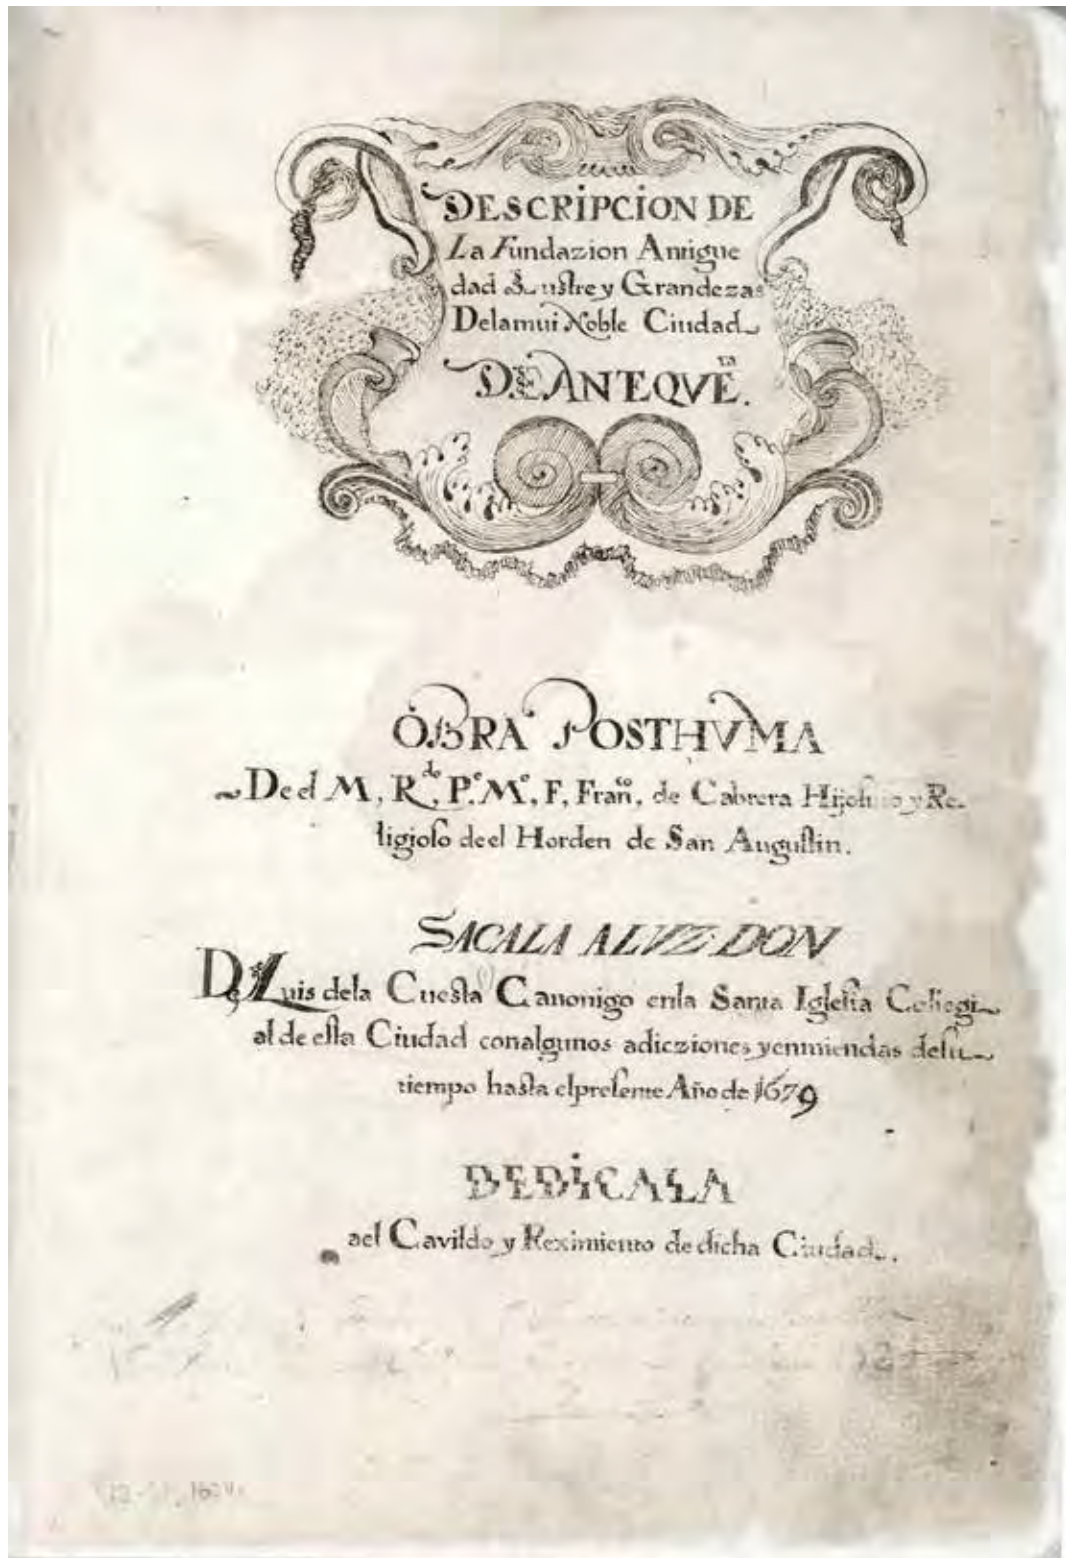 DESCRIPCION DE
La Fundazion Antigue
dad Lustre y Grandezas
De la mui Noble Ciudad
DE ANTEQVE.ra
OBRA POSTHVMA
De el M, R.do P.e M.o, F, Fran.co, de Cabrera Hijo y Re-
ligioso de el Horden de San Augustin.
SACALA A LVZ DON
Luis de la Cuesta Canonigo en la Santa Iglesia Collegi
al de esta Ciudad con algunos adicziones y enmiendas de su
tiempo hasta el presente Año de 1679
DEDICALA
ael Cavildo y Reximiento de dicha Ciudad.